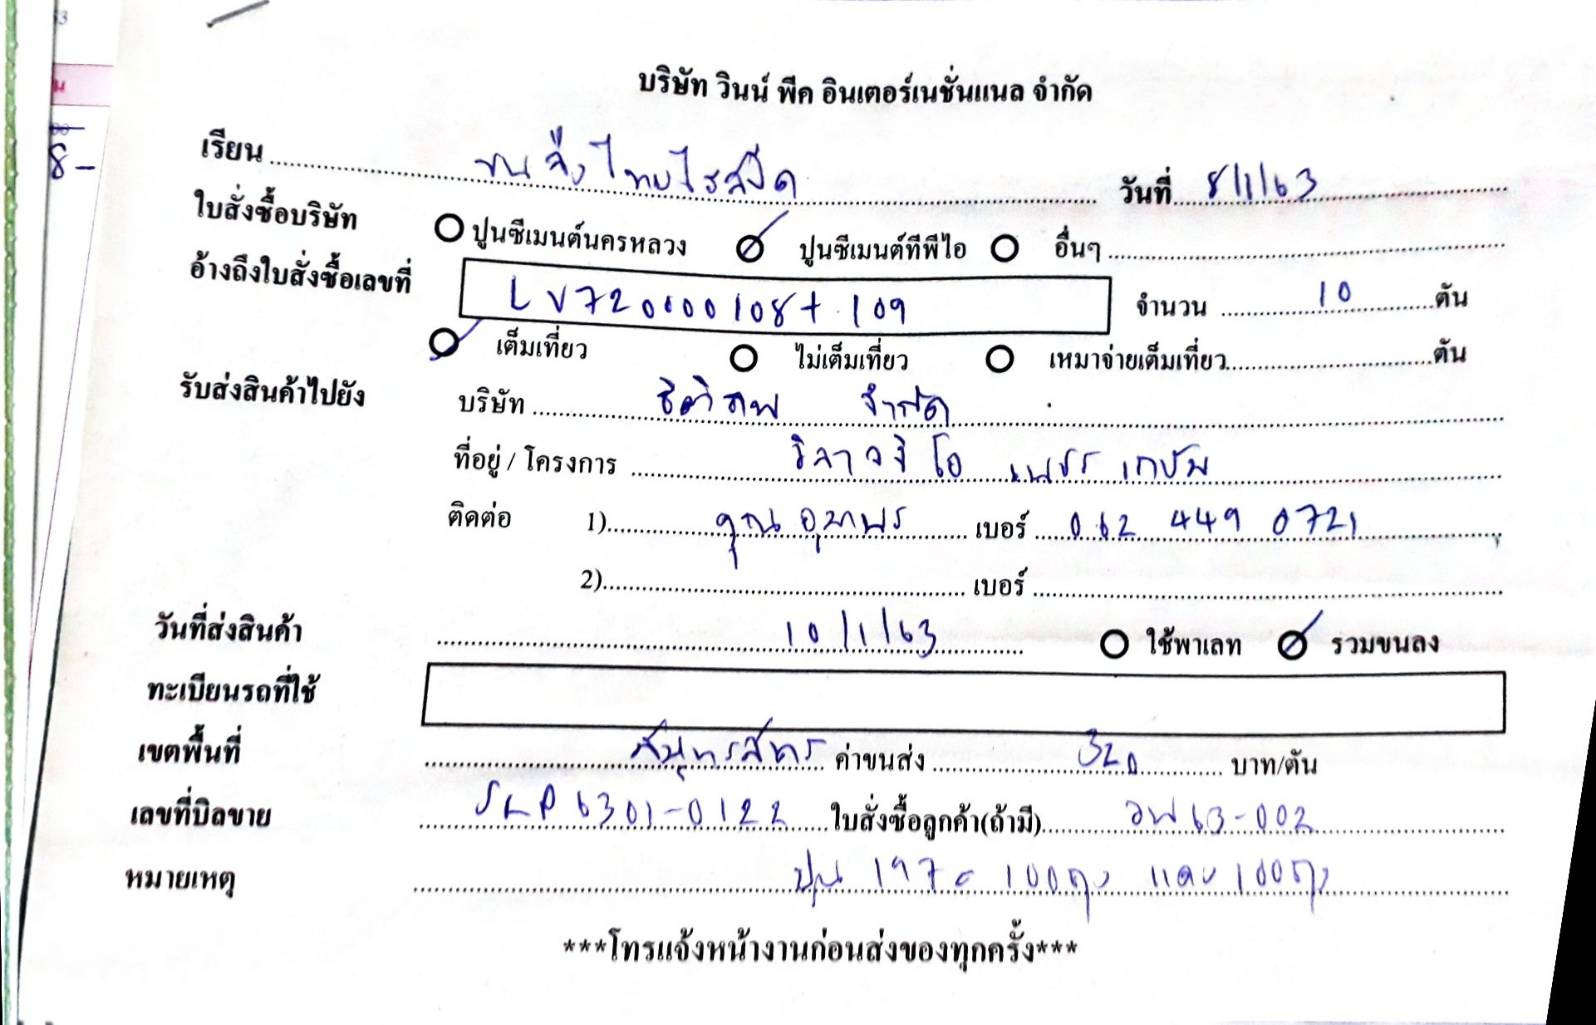 บริษัท วินน์ พีค อินเตอร์เนชั่นแนล จำกัด
เรียน ขนส่งไทยไรสงีด วันที่ 8/1/63
ใบสั่งซื้อบริษัท ปูนซีเมนต์นครหลวง ปูนซีเมนต์ทีพีไอ อื่นๆ
อ้างถึงใบสั่งซื้อเลขที่ LV7200000108+109 จำนวน 10 ตัน
เต็มเที่ยว ไม่เต็มเที่ยว เหมาจ่ายเต็มเที่ยว ตัน
รับส่งสินค้าไปยัง บริษัท จำกัด
ที่อยู่ / โครงการ เพชรเกษม
ติดต่อ 1) คุณ อุมาพร เบอร์ 062 449 0721
2) เบอร์
วันที่ส่งสินค้า 10/1/63 ใช้พาเลท รวมขนลง
ทะเบียนรถที่ใช้
เขตพื้นที่ สมุทรสาคร ค่าขนส่ง 320 บาท/ตัน
เลขที่บิลขาย SLP6301-0122 ใบสั่งซื้อลูกค้า(ถ้ามี) 63-002
หมายเหตุ ปูน 197 = 100ถุง และ 100ถุง
***โทรแจ้งหน้างานก่อนส่งของทุกครั้ง***
8-